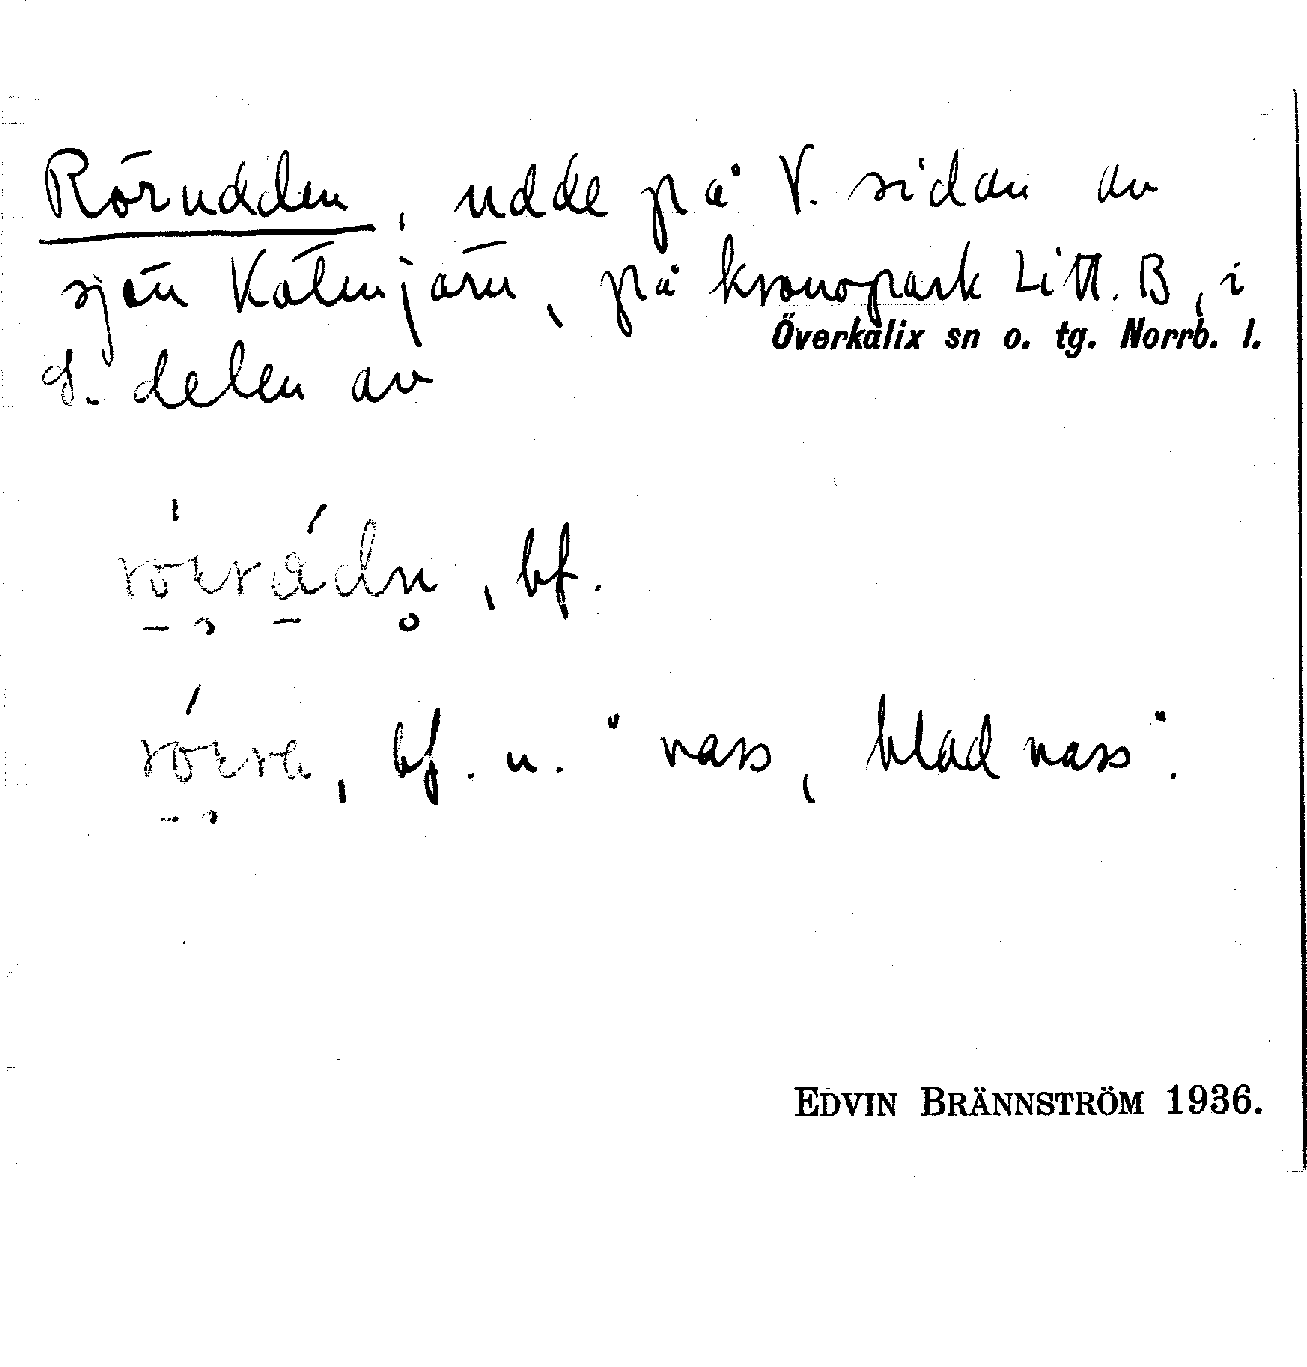 Rörudden, udde på V. sidan av
sjön Kätnjärn, på kronopark Litt. B, i
S. delen av Överkalix sn o. tg. Norrb. l.
, bf.
, bf. n. "vass, bladvass".
EDVIN BRÄNNSTRÖM 1936.